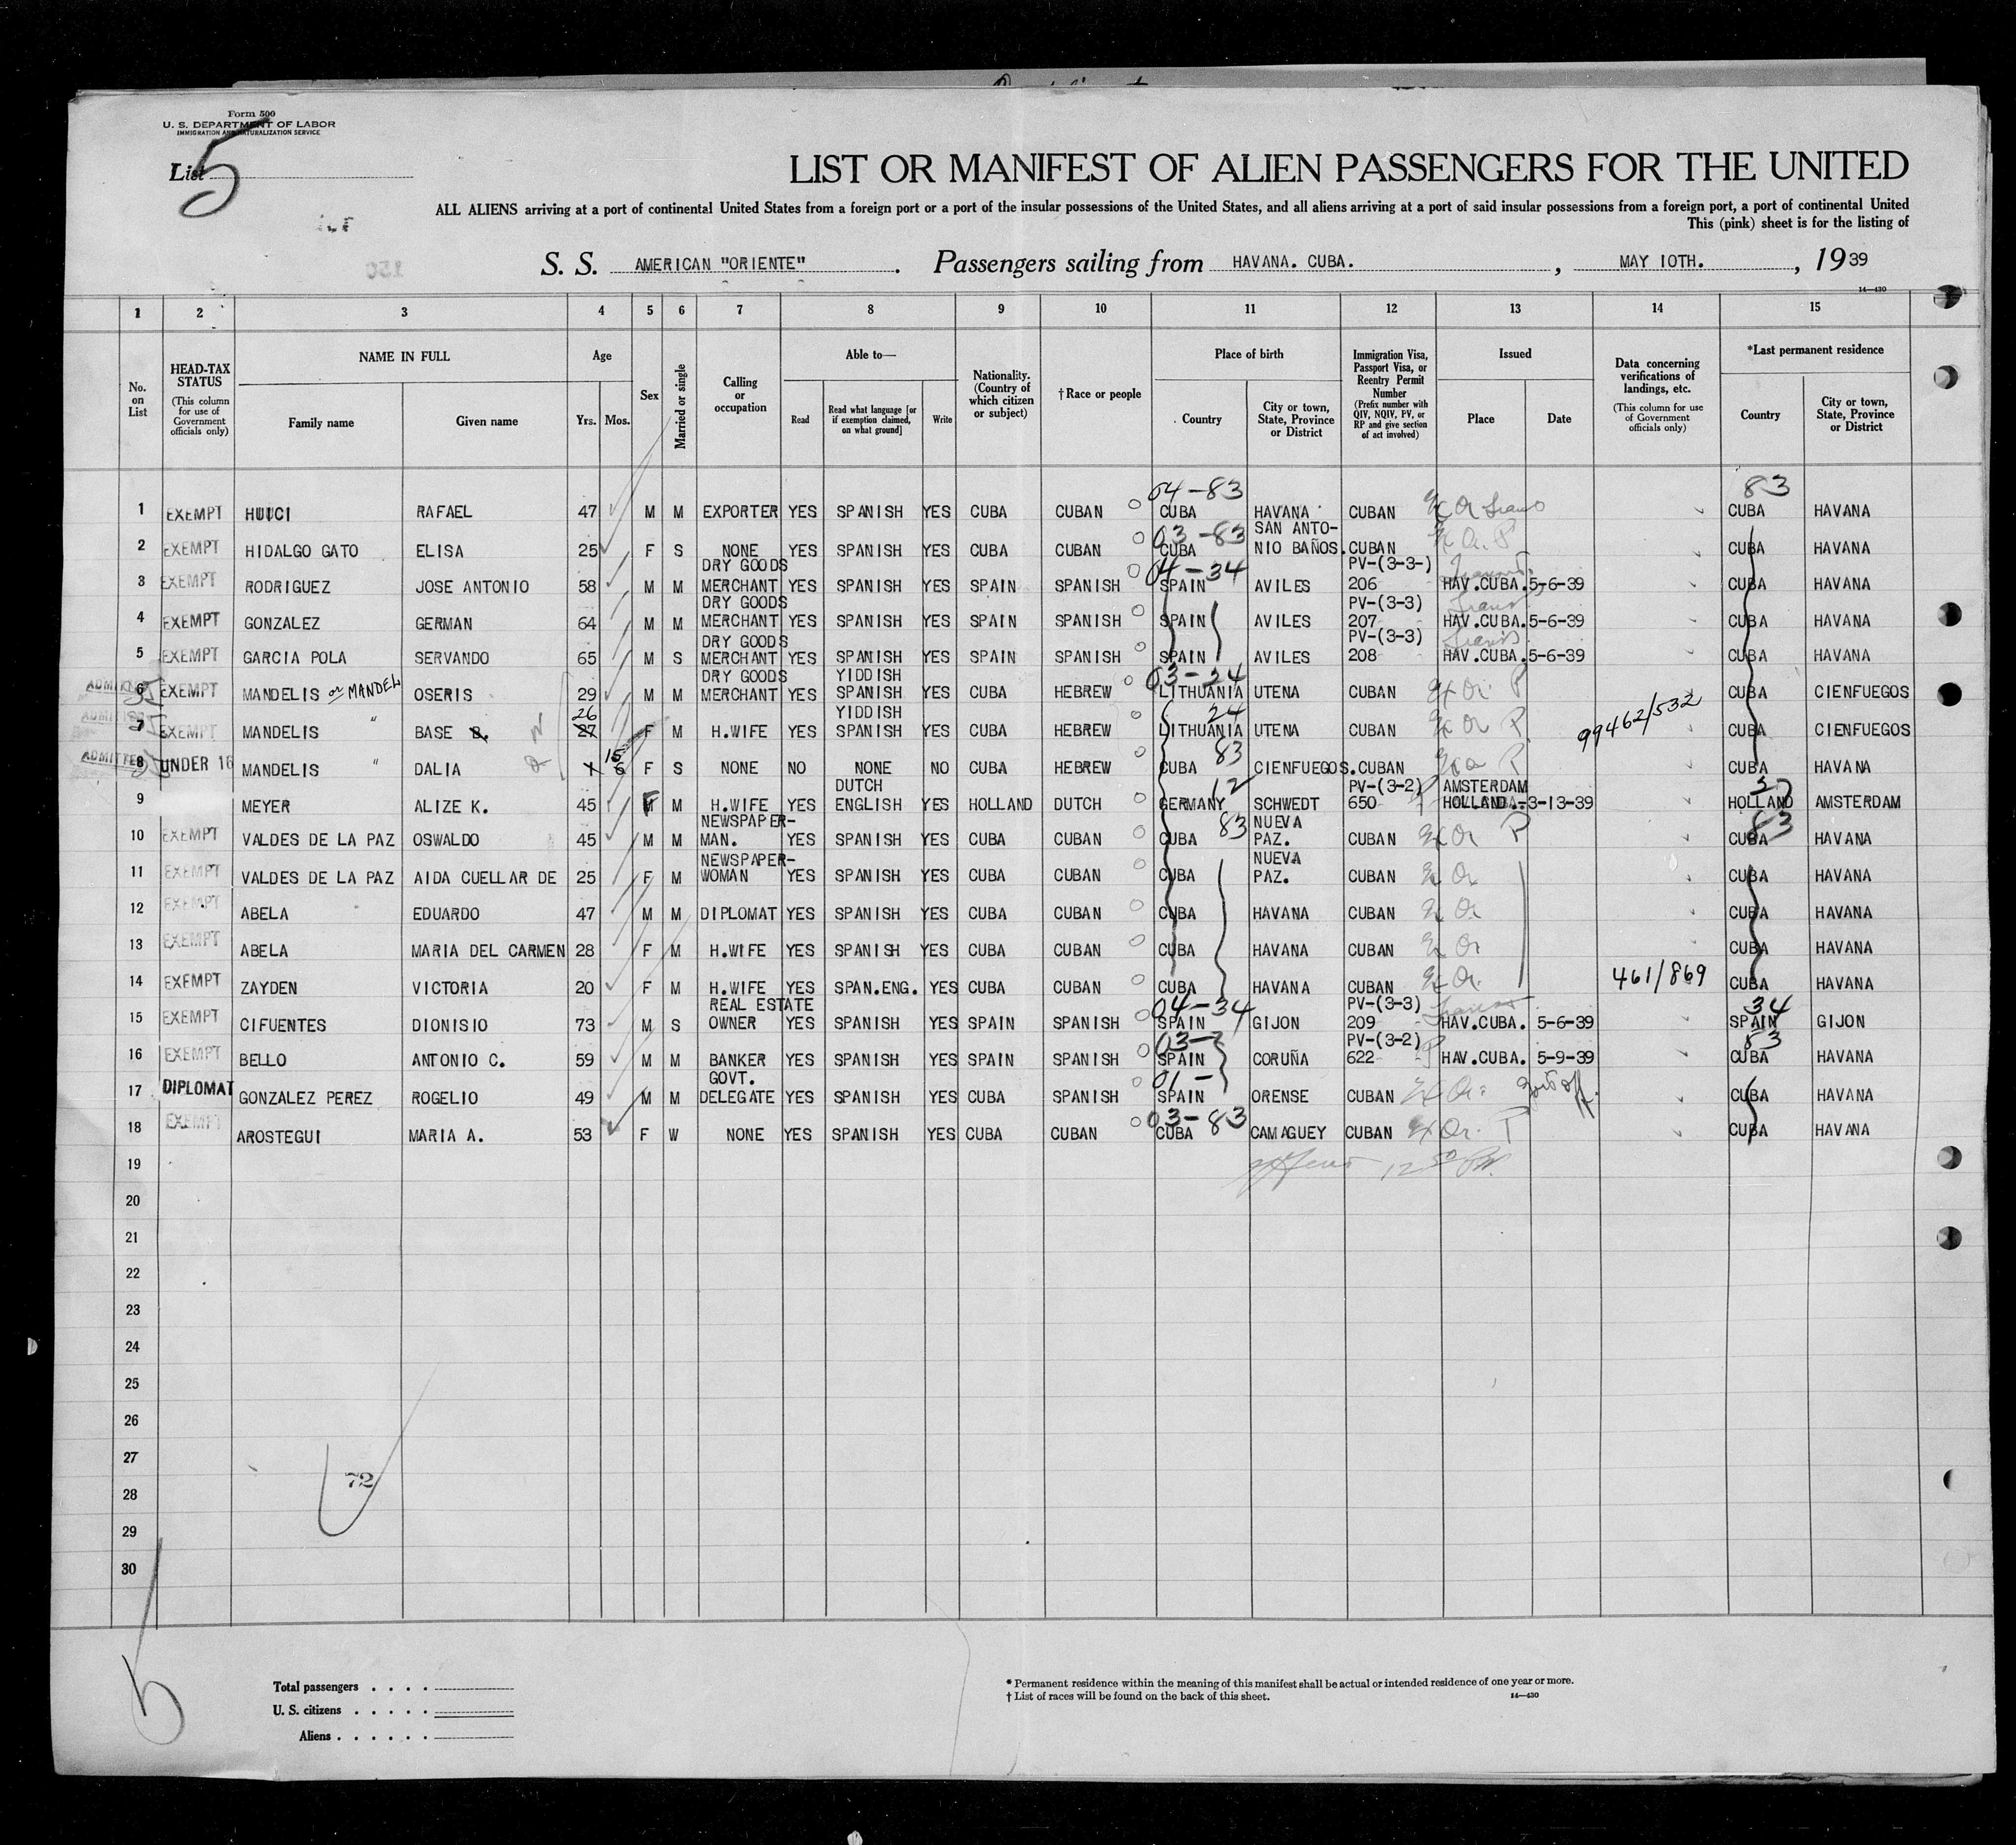 Form 500
U. S. DEPARTMENT OF LABOR
IMMIGRATION AND NATURALIZATION SERVICE
List 5
LIST OR MANIFEST OF ALIEN PASSENGERS FOR THE UNITED
ALL ALIENS arriving at a port of continental United States from a foreign port or a port of the insular possessions of the United States, and all aliens arriving at a port of said insular possessions from a foreign port, a port of continental United
This (pink) sheet is for the listing of
S. S. AMERICAN "ORIENTE". Passengers sailing from HAVANA. CUBA. , MAY 10TH. , 1939
14—430
1 2 3 4 5 6 7 8 9 10 11 12 13 14 15
No. on List
HEAD-TAX STATUS (This column for use of Government officials only)
NAME IN FULL
Family name
Given name
Age
Yrs. Mos.
Sex
Married or single
Calling or occupation
Able to—
Read
Read what language [or if exemption claimed, on what ground]
Write
Nationality. (Country of which citizen or subject)
† Race or people
Place of birth
Country
City or town, State, Province or District
Immigration Visa, Passport Visa, or Reentry Permit Number (Prefix number with QIV, NQIV, PV, or RP and give section of act involved)
Issued
Place
Date
Data concerning verifications of landings, etc. (This column for use of Government officials only)
*Last permanent residence
Country
City or town, State, Province or District
04-83 83
1 EXEMPT HUICI RAFAEL 47 M M EXPORTER YES SPANISH YES CUBA CUBAN CUBA HAVANA CUBAN CUBA HAVANA
03-83 SAN ANTO-
2 EXEMPT HIDALGO GATO ELISA 25 F S NONE YES SPANISH YES CUBA CUBAN CUBA NIO BAÑOS. CUBAN CUBA HAVANA
DRY GOODS 04-34 PV-(3-3-)
3 EXEMPT RODRIGUEZ JOSE ANTONIO 58 M M MERCHANT YES SPANISH YES SPAIN SPANISH SPAIN AVILES 206 HAV.CUBA. 5-6-39 CUBA HAVANA
DRY GOODS PV-(3-3)
4 EXEMPT GONZALEZ GERMAN 64 M M MERCHANT YES SPANISH YES SPAIN SPANISH SPAIN AVILES 207 HAV.CUBA. 5-6-39 CUBA HAVANA
DRY GOODS PV-(3-3)
5 EXEMPT GARCIA POLA SERVANDO 65 M S MERCHANT YES SPANISH YES SPAIN SPANISH SPAIN AVILES 208 HAV.CUBA. 5-6-39 CUBA HAVANA
ADMITTED DRY GOODS YIDDISH 03-24
6 EXEMPT MANDELIS or MANDEL OSERIS 29 M M MERCHANT YES SPANISH YES CUBA HEBREW LITHUANIA UTENA CUBAN CUBA CIENFUEGOS
ADMITTED 26 YIDDISH 24
7 EXEMPT MANDELIS " BASE B. 27 F M H.WIFE YES SPANISH YES CUBA HEBREW LITHUANIA UTENA CUBAN 99462/532 CUBA CIENFUEGOS
ADMITTED 15 83
8 UNDER 16 MANDELIS " DALIA 1 6 F S NONE NO NONE NO CUBA HEBREW CUBA CIENFUEGOS. CUBAN CUBA HAVANA
DUTCH 12 PV-(3-2) AMSTERDAM
9 MEYER ALIZE K. 45 F M H.WIFE YES ENGLISH YES HOLLAND DUTCH GERMANY SCHWEDT 650 HOLLAND.-3-13-39 HOLLAND AMSTERDAM
NEWSPAPER- 83 NUEVA 83
10 EXEMPT VALDES DE LA PAZ OSWALDO 45 M M MAN. YES SPANISH YES CUBA CUBAN CUBA PAZ. CUBAN CUBA HAVANA
NEWSPAPER- NUEVA
11 EXEMPT VALDES DE LA PAZ AIDA CUELLAR DE 25 F M WOMAN YES SPANISH YES CUBA CUBAN CUBA PAZ. CUBAN CUBA HAVANA
12 EXEMPT ABELA EDUARDO 47 M M DIPLOMAT YES SPANISH YES CUBA CUBAN CUBA HAVANA CUBAN CUBA HAVANA
13 EXEMPT ABELA MARIA DEL CARMEN 28 F M H.WIFE YES SPANISH YES CUBA CUBAN CUBA HAVANA CUBAN CUBA HAVANA
14 EXEMPT ZAYDEN VICTORIA 20 F M H.WIFE YES SPAN.ENG. YES CUBA CUBAN CUBA HAVANA CUBAN 461/869 CUBA HAVANA
REAL ESTATE 04-34 PV-(3-3) 34
15 EXEMPT CIFUENTES DIONISIO 73 M S OWNER YES SPANISH YES SPAIN SPANISH SPAIN GIJON 209 HAV.CUBA. 5-6-39 SPAIN GIJON
PV-(3-2) 83
16 EXEMPT BELLO ANTONIO C. 59 M M BANKER YES SPANISH YES SPAIN SPANISH SPAIN CORUÑA 622 HAV.CUBA. 5-9-39 CUBA HAVANA
GOVT. 01-
17 DIPLOMAT GONZALEZ PEREZ ROGELIO 49 M M DELEGATE YES SPANISH YES CUBA SPANISH SPAIN ORENSE CUBAN CUBA HAVANA
03-83
18 EXEMPT AROSTEGUI MARIA A. 53 F W NONE YES SPANISH YES CUBA CUBAN CUBA CAMAGUEY CUBAN CUBA HAVANA
19
20
21
22
23
24
25
26
27
72
28
29
30
Total passengers . . . .
U. S. citizens . . . . .
Aliens . . . . . .
* Permanent residence within the meaning of this manifest shall be actual or intended residence of one year or more.
† List of races will be found on the back of this sheet.
14—430